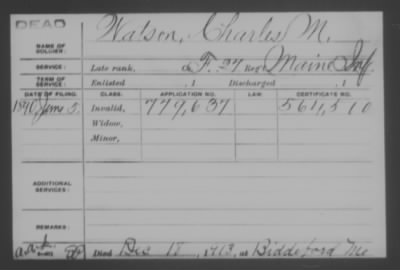 DEAD
Watson, Charles M.
NAME OF SOLDIER:
SERVICE: Late rank, F. 27 Reg't Maine Inf.
TERM OF SERVICE: Enlisted , 1 Discharged , 1
DATE OF FILING. CLASS. APPLICATION NO. LAW. CERTIFICATE NO.
1890, June 5. Invalid, 779,637 564,510
Widow,
Minor,
ADDITIONAL SERVICES:
REMARKS:
Died Dec , 1913, at Biddeford Me